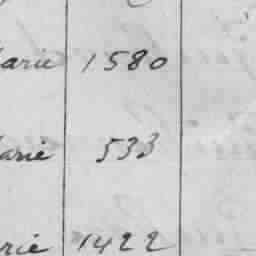 arie 1580
arie 533
rie 1422